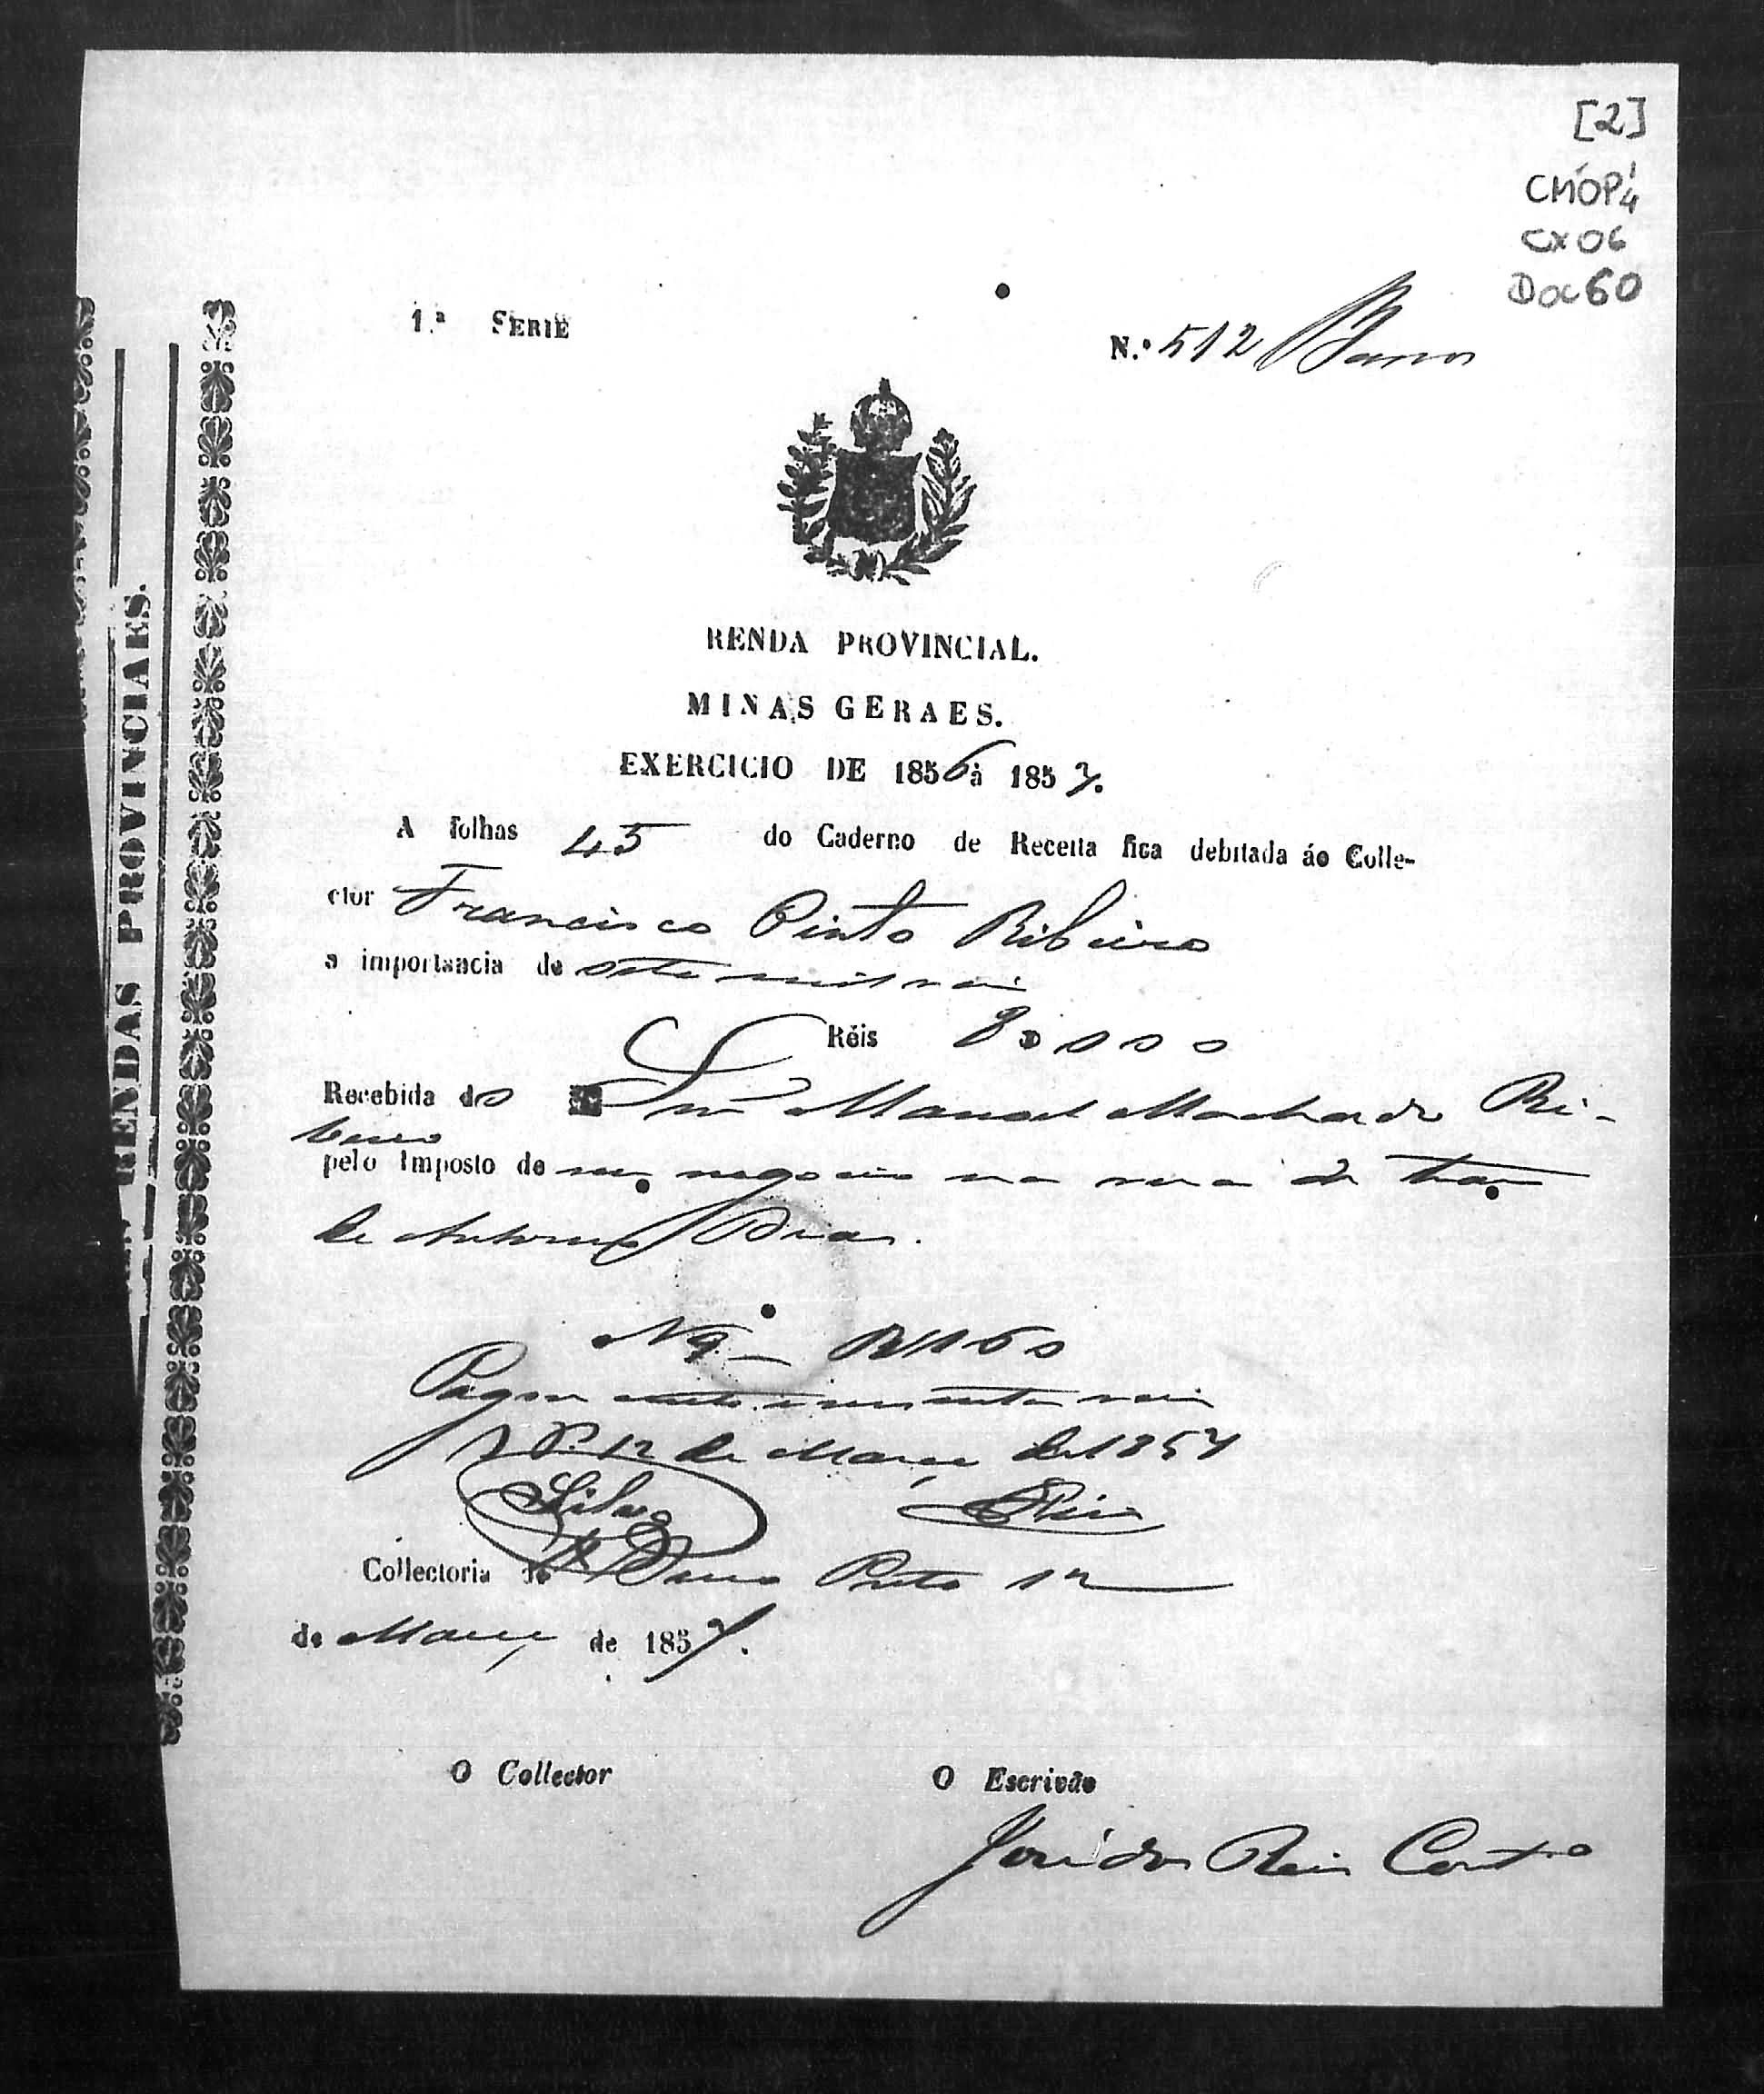 [2]
CMOP 1/4
CX 06
Doc 60
1.ª SERIE
N.º 512
RENDA PROVINCIAL.
MINAS GERAES.
EXERCICIO DE 1856 á 1857.
A folhas 45 do Caderno de Receita fica debitada áo Colle-
ctor Francisco Pinto Ribeiro
a importancia de mil reis
Réis 000
Recebida do Snr Manoel Machado Ri-
beiro
pelo Imposto de seu negocio na rua de traz
de Antonio Dias.
Nº 9 160
Pagou cento e sessenta reis
O P. 12 de Março de 1857
Silva Reis
Collectoria do Ouro Preto 12
de Março de 1857.
O Collector O Escrivão
José dos Reis Couto
RENDAS PROVINCIAES.